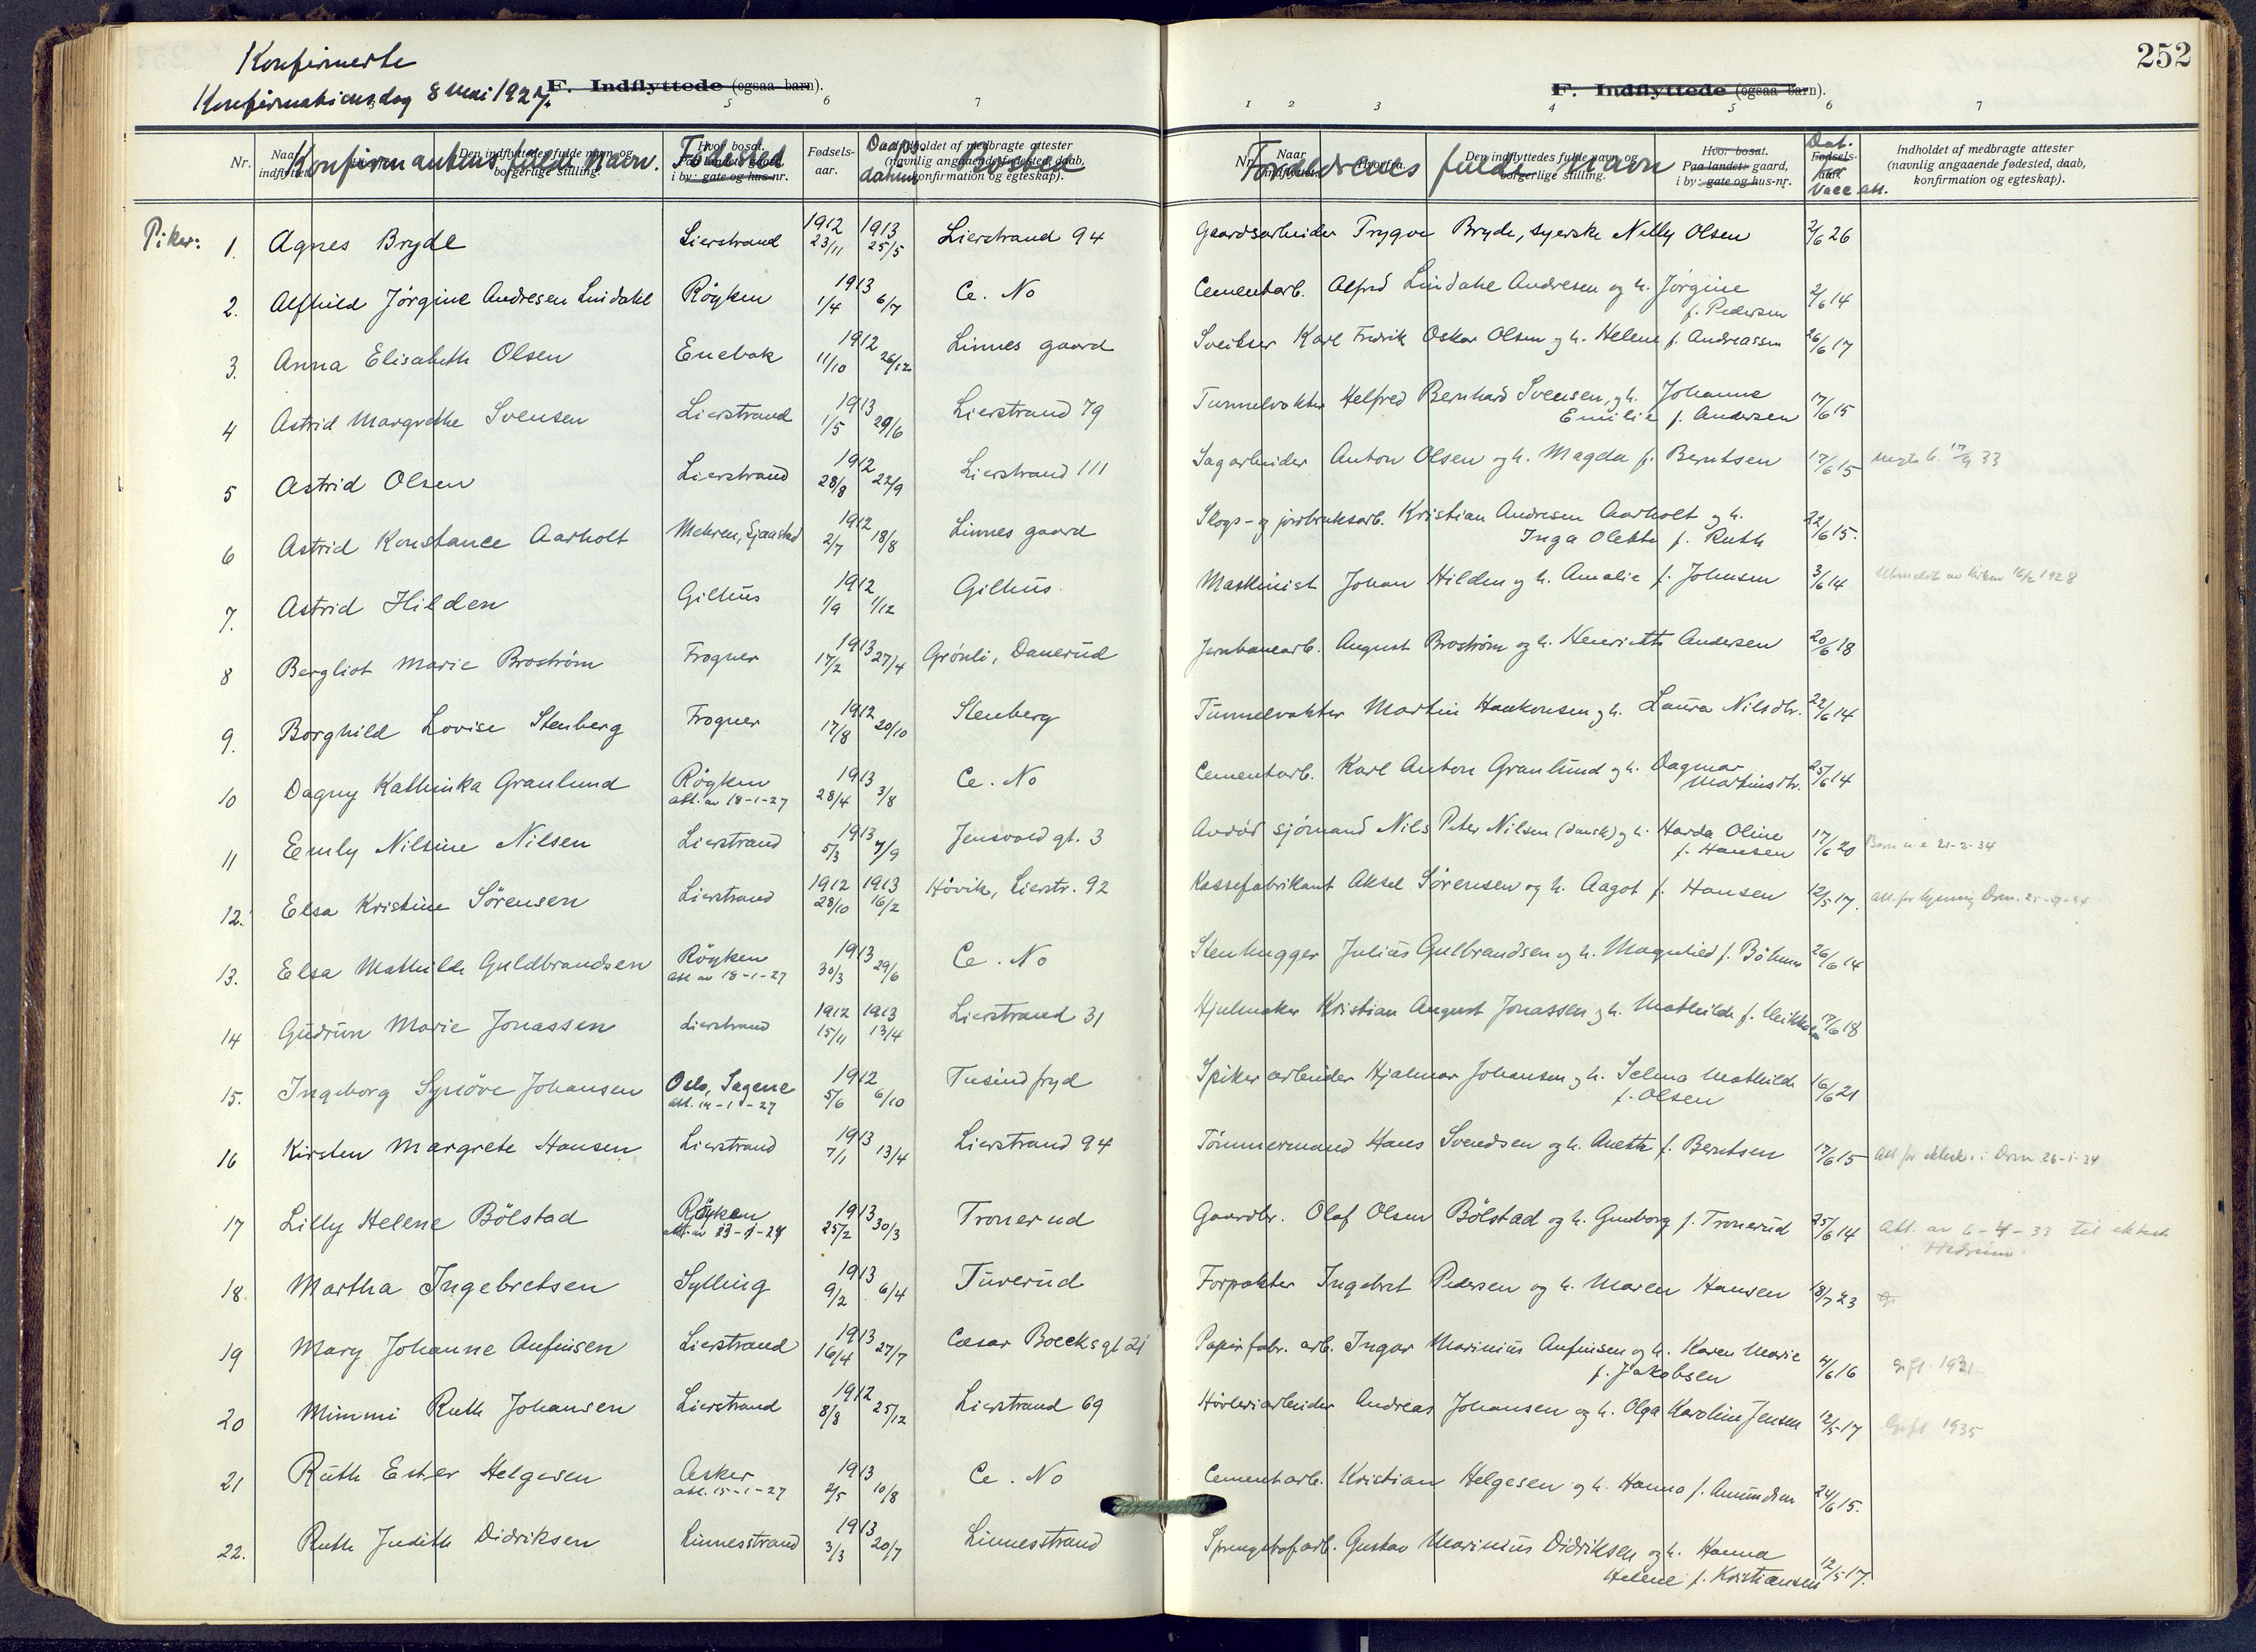 252
Konfirmerte
Konfirmationsdag 8 mai 1927.
F. Indflyttede (ogsaa barn).
5 6 7
F. Indflyttede (ogsaa barn).
1 2 3 4 5 6 7
Nr. Konfirmantens fulde navn. Fødested Fødsels-aar. Daaps datum Bosted
Den indflyttedes fulde navn og borgerlige stilling.
Hvor bosat. Paa landet: gaard, i by: gate og hus-nr.
Indholdet af medbragte attester (navnlig angaaende fødested, daab, konfirmation og egteskap).
Nr. Naar Forældrenes fulde navn Dat. for vacc. att.
Den indflyttedes fulde navn og borgerlige stilling.
Hvor bosat. Paa landet: gaard, i by: gate og hus-nr.
Fødsels-
Indholdet af medbragte attester (navnlig angaaende fødested, daab, konfirmation og egteskap).
Piker:
1. Agnes Bryde Lierstrand 1912 23/11 1913 25/5 Lierstrand 94 Gaardsarbeider Trygve Bryde, syerske Nelly Olsen 2/6 26
2. Alfhild Jørgine Andresen Lindahl Röyken 1913 1/4 6/7 Ce. No Cementarb. Alfred Lindahl Andresen og h. Jørgine f. Pedersen 2/6 14
3. Anna Elisabeth Olsen Enebak 1912 11/10 26/12 Linnes gaard Sveitser Karl Fredrik Oskar Olsen og h. Helene f. Andreassen 26/6 17
4 Astrid Margrethe Svensen Lierstrand 1913 1/5 29/6 Lierstrand 79 Tunnelvakter Helfred Bernhard Svensen, og h. Johanne Emilie f. Andersen 17/6 15
5 Astrid Olsen Lierstrand 1912 28/8 22/9 Lierstrand 111 Sagarbeider Anton Olsen og h. Magda f. Berntsen 17/6 15 17/9 33
6 Astrid Konstance Aarholt Mehren, Sjaastad 1912 2/7 18/8 Linnes gaard Skogs- og jordbruksarb. Kristian Andresen Aarholt og h. Inga Olette f. Ruth 22/6 15.
7. Astrid Hilden Gilhus 1912 1/9 1/12 Gilhus Maskinist Johan Hilden og h. Amalie f. Johnsen 3/6 14 Utmeldt av kirken 16/2 1928
8 Bergliot Marie Broström Frogner 1913 17/2 27/4 Grönli, Danerud Jernbanearb. August Broström og h. Henriette Andersen 20/6 18
9. Borghild Lovise Stenberg Frogner 1912 17/8 20/10 Stenberg Tunnelvakter Martin Haakonsen og h. Laura Nilsdtr. 22/6 14
10 Dagny Kathinka Granlund Röyken att. av 18-1-27 1913 28/4 3/8 Ce. No Cementarb. Karl Anton Granlund og h. Dagmar Martinsdtr. 25/6 14
11 Emly Nilsine Nilsen Lierstrand 1913 5/3 7/9 Jensvold gt. 3 Avdöd sjömand Nils Peter Nilsen (dansk) og h. Harda Oline f. Hansen 17/6 20 21-2-34
12. Elsa Kristine Sörensen Lierstrand 1912 28/10 1913 16/2 Hövik, Lierstr. 92 Kassefabrikant Aksel Sörensen og h. Aagot f. Hansen 12/5 17. Att. for lysning Drm.
13. Elsa Mathilde Guldbrandsen Röyken att av 18-1-27 1913 30/3 29/6 Ce. No Stenhugger Julius Gulbrandsen og h. Magnhild f. Böhmer 26/6 14
14 Gudrun Marie Jonassen Lierstrand 1912 15/11 1913 13/4 Lierstrand 31 Hjulmaker Kristian August Jonassen og h. Mathilde f. 17/6 18
15. Ingeborg Synöve Johansen Oslo, Sagene att. 14-1-27 1912 5/6 6/10 Tusindfryd Spikerarbeider Hjalmar Johansen og h. Selma Mathilde f. Olsen 16/6 21
16 Kirsten Margrete Hansen Lierstrand 1913 7/1 13/4 Lierstrand 94 Tömmermand Hans Svendsen og h. Anette f. Berntsen 17/6 15 Att for ektesk. i Drm 26-1-34
17 Lilly Helene Bölstad Röyken 1913 25/2 30/3 Tronerud Gaardbr. Olaf Olsen Bölstad og h. Gunborg f. Tronerud 25/6 14 Att. av 6-4-33 til ektesk i Hedrum.
18. Martha Ingebretsen Sylling 1913 9/2 6/4 Tuverud Forpakter Ingebret Pedersen og h. Maren Hansen 18/7 23
19 Mary Johanne Anfinsen Lierstrand 1913 16/4 27/7 Cæsar Boecks gt 21 Papirfabr. arb. Ingvar Marinius Anfinsen og h. Karen Marie f. Jakobsen 4/6 16 Gift 1931
20 Mimmi Ruth Johansen Lierstrand 1912 8/8 25/12 Lierstrand 69 Hövleriarbeider Andreas Johansen og h. Olga Karoline Jensen 12/5 17 Gift 1935
21 Ruth Ester Helgesen Asker att. 15-1-27 1913 2/5 10/8 Ce. No Cementarb. Kristian Helgesen og h. Hanna f. Amundsen 24/6 15.
22. Ruth Judith Didriksen Linnesstrand 1913 3/3 20/7 Linnesstrand Sprengstofarb. Gustav Marinius Didriksen og h. Hanna Helene f. Kristiansen 12/5 17.